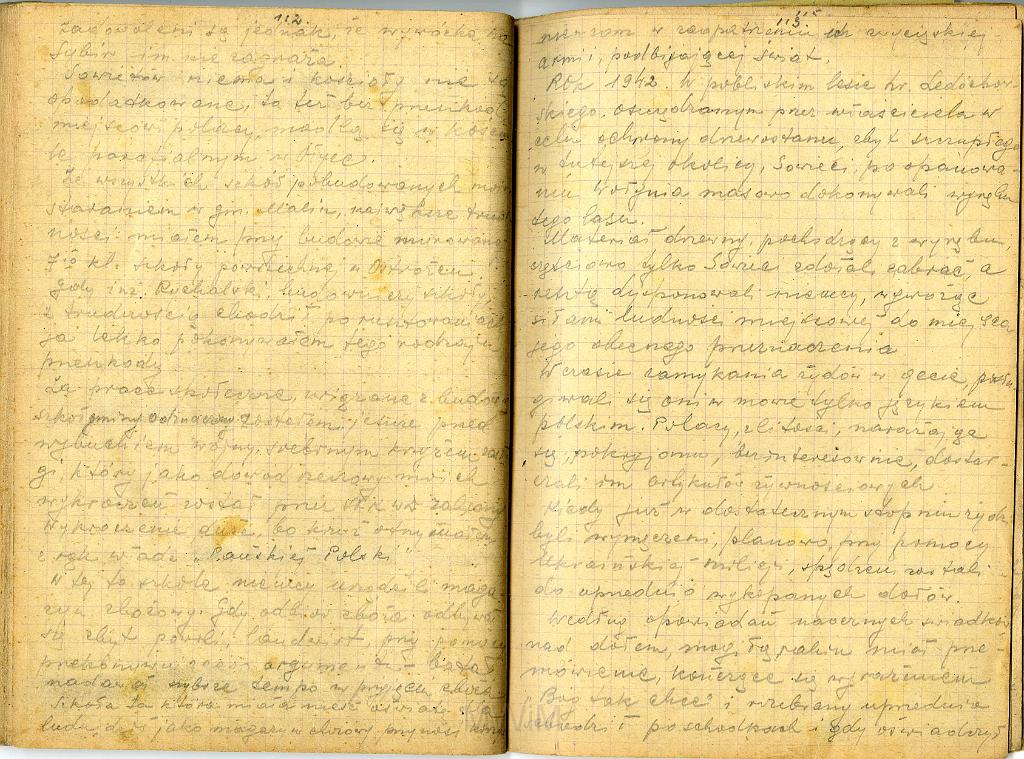 112
zadowoleni są jednak, że wywózka na
Sybir im nie zagraża.
Sowietów niema i kościoły nie są
opodatkowane, to też bez przeszkód
miejscowi polacy, modlą się w koście
le parafialnym w Ożec.
Ze wszystkich szkół pobudowanych moim
staraniem w gm. Malin, największe trud
ności miałem przy budowie murowanej
7io kl. szkoły powszechnej w Ostrożcu.
gdy inż. Kuchalski, budowniczy szkoły,
z trudnością chodził po rusztowaniach
ja lekko pokonywałem tego rodzaju
przeszkody.
Za prace społeczne, związane z budową
szkół gminy odznaczony zostałem jeszcze przed
wybuchem wojny, srebrnym krzyżem zasłu
gi, który jako dowód rzeczowy moich
wykroczeń został przez
Wykroczenie duże, bo krzyż otrzymałem
z rąk władz "Pańskiej Polski"
W tej to szkole niemcy urządzili maga
zyn zbożowy. Gdy odbiór zboża odbywał
się zbyt powoli, landwirt, przy pomocy
przekonywującego argumentu – bata
nadawał szybsze tempo w przyjęciu zboża
Szkoła ta która miała nieść oświatę
ludu, dziś jako magazyn zbożowy, przynosi
113
115
w zaopatrzeniu ich zwycięskiej
armii, podbijającej świat.
Rok 1942. W pobliskim lesie hr. Ledóchow
skiego, oszczędzanym przez właściciela w
celu ochrony drzewostanu, zbyt szczupłego
w tutejszej okolicy, Sowieci, po opanowa-
niu Wołynia masowo dokonywali wyrębu
tego lasu.
Materiał drzewny, pochodzący z wyrębu,
częściowo tylko Sowieci zdołali zabrać, a
resztę dysponowali niemcy, wywożąc
siłami ludności miejscowej do miejsca
jego obecnego przeznaczenia
W czasie zamykania żydów w gecie, posłu
giwali się oni w mowie tylko językiem
polskim. Polacy, z litości, narażając
się, pokryjomu, bezinteresownie, dostar-
czali im artykułów żywnościowych
Kiedy już w dostatecznym stopniu żydzi
byli wyniszczeni, planowo, przy pomocy
Ukraińskiej milicji, spędzeni zostali
do uprzednio wykopanych dołów.
Według opowiadań naocznych świadków
nad dołem, mogiłą, rabin miał prze-
mówienie, kończące się wyrażeniem
"Bóg tak chce" i rozebrany uprzednio
schodził po schodkach i gdy oświadczył